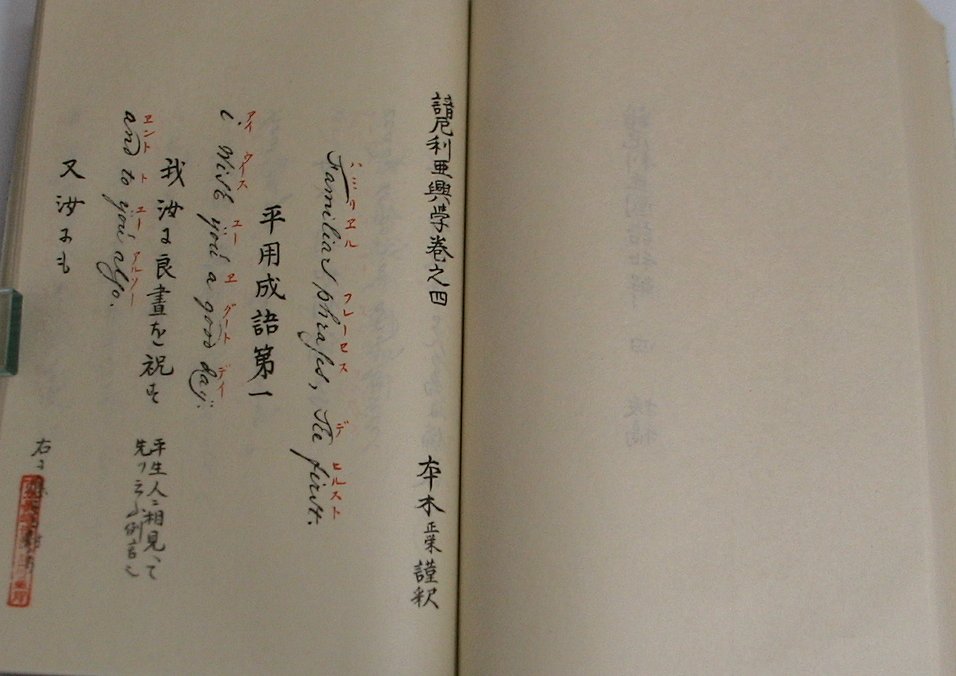 諳厄利亜興学巻之四
本木正栄謹釈
ハミリヱル フレーセス デ ヒルスト
Familiar phraſes, The first.
平用成語第一
アイ ウイス ユー ヱ グート デイ
i Wish you a good day.
我汝に良昼を祝す
平生人ニ相見て
先ツ云ふ例言也
ヱント ト ユー アルソー
and to you alſo.
又汝にも
右ニ